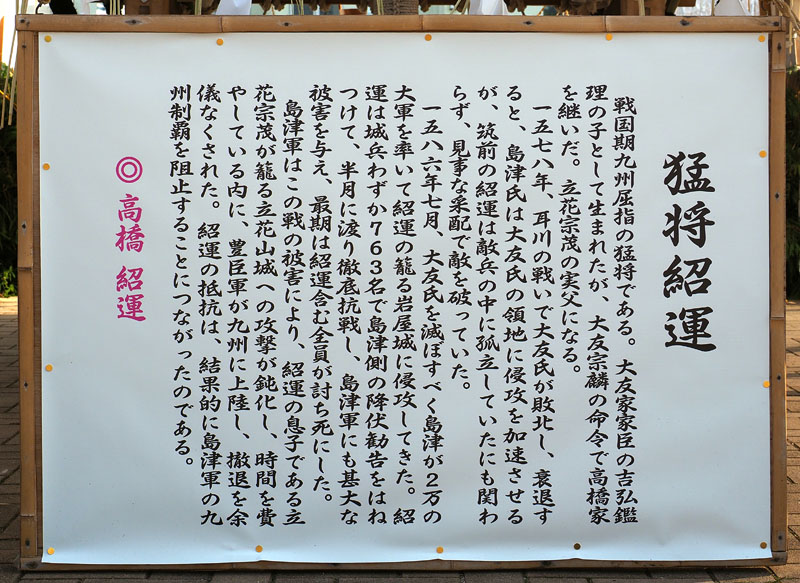 猛将紹運
戦国期九州屈指の猛将である。大友家家臣の吉弘鑑
理の子として生まれたが、大友宗麟の命令で高橋家
を継いだ。立花宗茂の実父になる。
一五七八年、耳川の戦いで大友氏が敗北し、衰退す
ると、島津氏は大友氏の領地に侵攻を加速させる
が、筑前の紹運は敵兵の中に孤立していたにも関わ
らず、見事な采配で敵を破っていた。
一五八六年七月、大友氏を滅ぼすべく島津が2万の
大軍を率いて紹運の籠る岩屋城に侵攻してきた。紹
運は城兵わずか763名で島津側の降伏勧告をはね
つけて、半月に渡り徹底抗戦し、島津軍にも甚大な
被害を与え、最期は紹運含む全員が討ち死にした。
島津軍はこの戦の被害により、紹運の息子である立
花宗茂が籠る立花山城への攻撃が鈍化し、時間を費
やしている内に、豊臣軍が九州に上陸し、撤退を余
儀なくされた。紹運の抵抗は、結果的に島津軍の九
州制覇を阻止することにつながったのである。
◎高橋 紹運